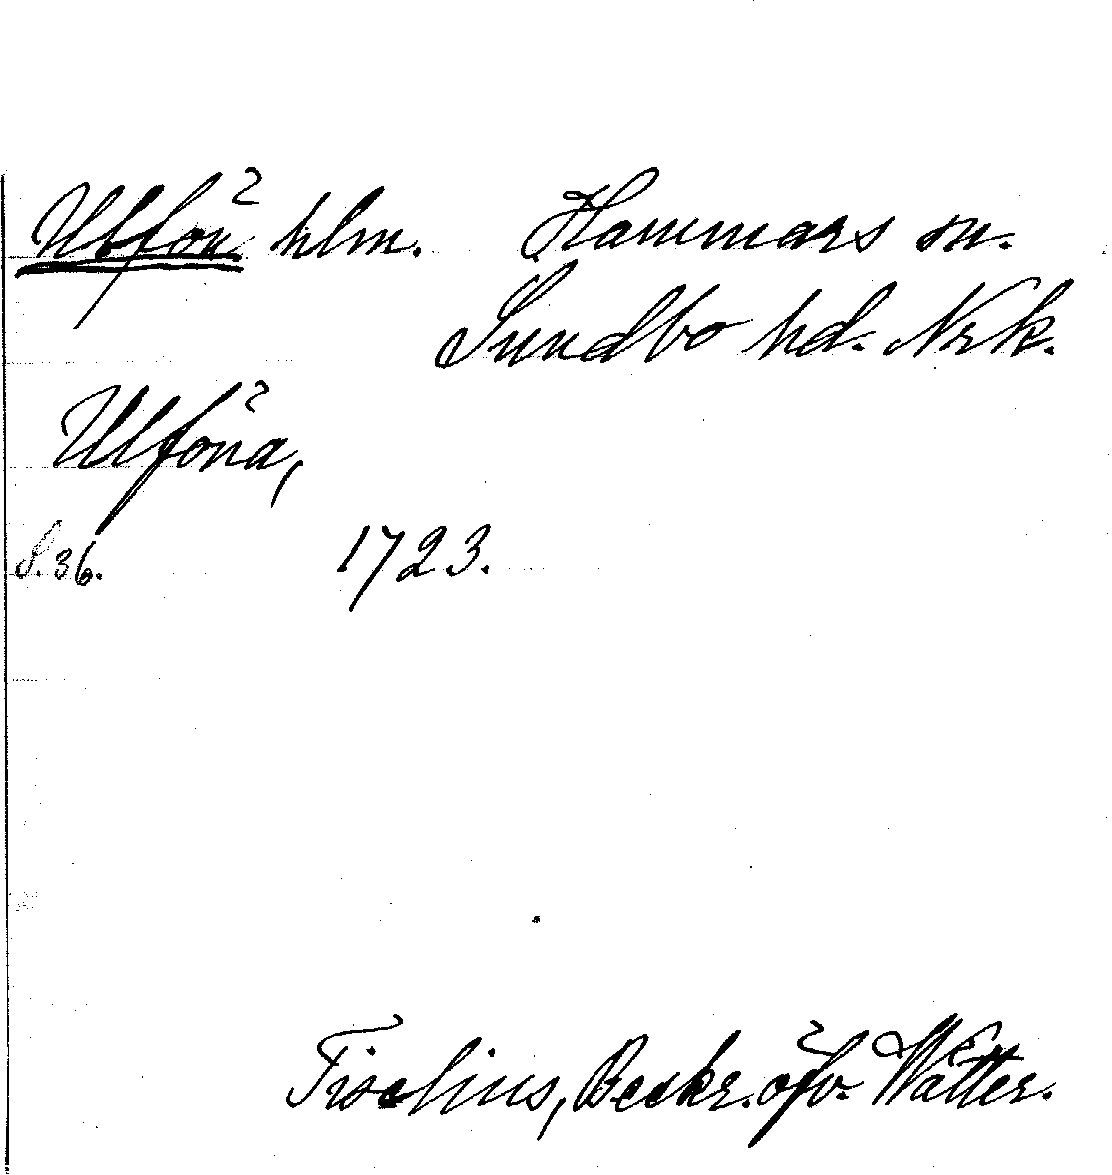 Ulfön hlm. Hammars sn.
Sundbo hd. Nrk.
Ulföna,
S. 36. 1723.
Tiselius, Beskr. öfv. Wätter.